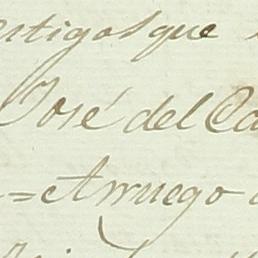 estigos que
José del Ca
= Arruego